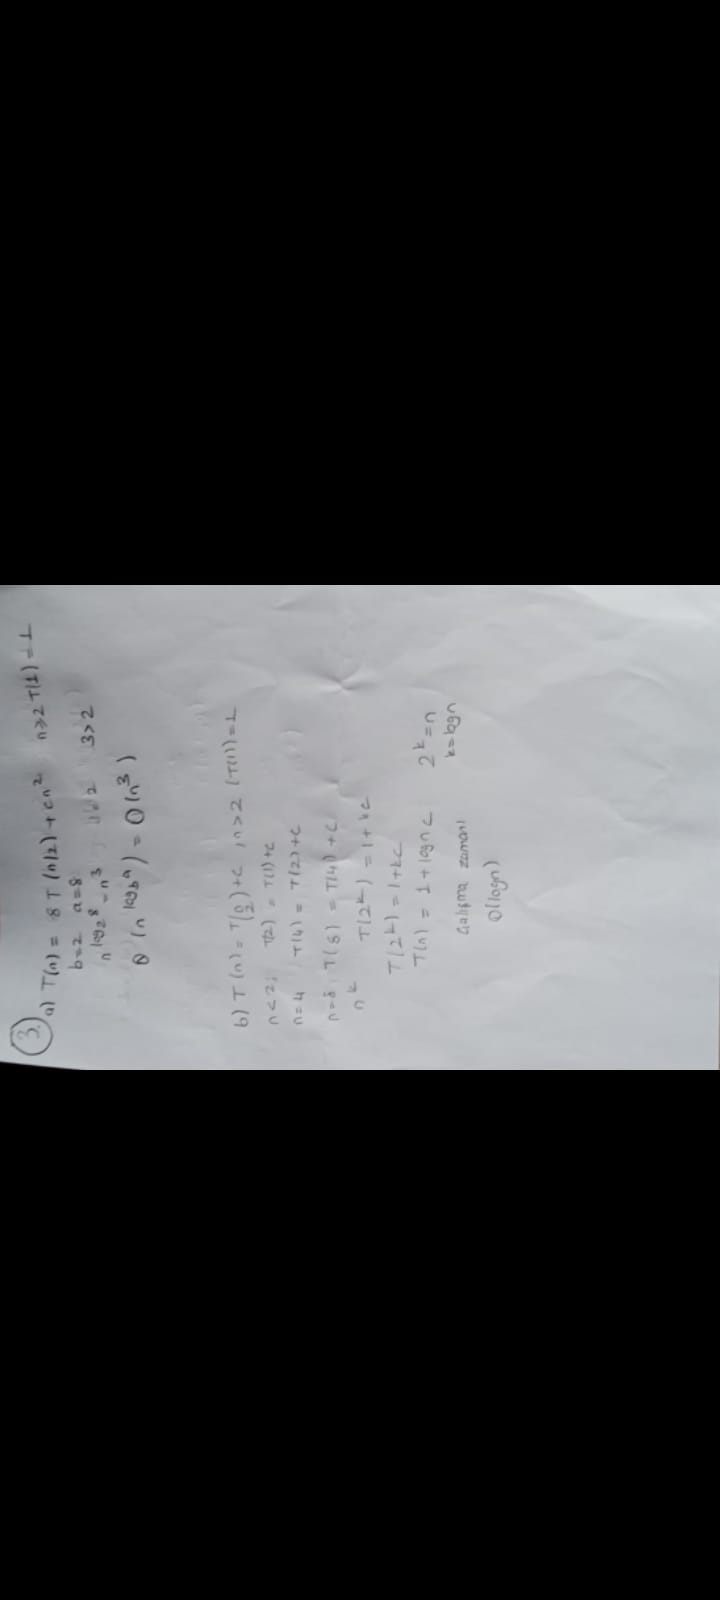 3.
a) T(n) = 8T(n/2) + cn² n≥2 T(1) = 1
b=2 a=8
n^log₂8 = n³ 3>2
θ(n^log_b a) = θ(n³)
b) T(n) = T(n/2) + c, n>2 (T(1)) = 1
n<2; T(2) = T(1)+c
n=4 T(4) = T(2)+c
n=8, T(8) = T(4) + c
n^k T(2^k) = 1 + kc
T(2^k) = 1+kc
T(n) = 1 + logn c 2^k = n
k=logn
Çalışma zamanı
θ(logn)